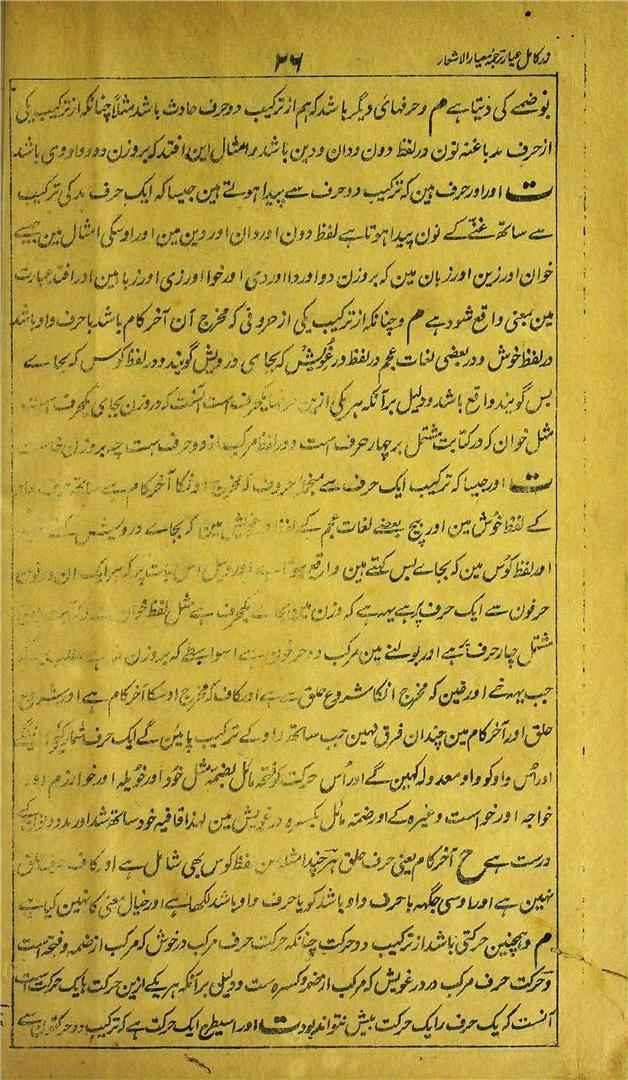 زر کامل عیار ترجمہ معیار الاشعار
۲۶
بوضمے کی دیتا ہے م و حرفہای دیگر باشد کہ ہم از ترکیب دو حرف حادث باشد مثلاً چنانکہ از ترکیب یکی
از حرف مد با غنہ نون در لفظ دون و دان و دین باشد و امثال این افتد کہ بر وزن دو و دا و دی باشد
ت اور اور حرف ہین کہ ترکیب دو حرف سے پیدا ہوتے ہین جیسا کہ ایک حرف مد کی ترکیب
سے ساتھ غنے کے نون پیدا ہوتا ہے لفظ دون اور دان اور دین مین اور اوسکی امثال مین جیسے
خوان اور زین اور زبان مین کہ بر وزن دو اور دا اور دی اور خوا اور زی اور زبا ہین اور افتد عبارت
مین بمعنی واقع شود ہے م و چنانکہ از ترکیب یکی از حروفی کہ مخرج آن آخر کام باشد با حرف واو باشد
در لفظ خوش و در بعضی لغات عجم در لفظ در غویش کہ بجای درویش گویند و در لفظ کوس کہ بجاے
بس گویند واقع باشد و دلیل بر آنکہ ہر یکی ازین یکحرف است آنست کہ در وزن بجای یکحرف است
مثل خوان کہ در کتابت مشتمل بر چہار حرف است و در لفظ مرکب از دو حرف است چہ بر وزن
ت اور جیسا کہ ترکیب ایک حرف سے منجملہ حروف کہ مخرج اونکا آخر کام ہے ساتھ حرف واو
کے لفظ خوش مین اور بیچ بعضے لغات عجم کے لفظ در غویش مین کہ بجاے درویش کے
اور لفظ کوس مین کہ بجاے بس کہتے ہین واقع ہوتا ہے اور دلیل اس بات پر کہ ہر ایک ان دونون
حرفون سے ایک حرف پر ہے یہہ ہے کہ وزن مین بجاے یکحرف ہے مثل لفظ خوان کے کہ
مشتمل چار حرف پر ہے اور بولنے مین مرکب دو حرفون سے ہے اسواسطے کہ بر وزن
جب یہہ خے اور غین کہ مخرج انکا شروع حلق سے ہے اور کاف کہ مخرج اوسکا آخر کام ہے اور شروع
حلق اور آخر کام مین چندان فرق نہین جب ساتھ واو کے ترکیب پائین گے ایک حرف شمار کیے جائینگے
اور اس واو کو واو معدولہ کہین گے اور اس حرکت کو فتحہ مائل بضمہ مثل خود اور خوطہ اور خوارزم اور
خواجہ اور خواست وغیرہ کے اور ضمہ مائل بکسرہ در غویش مین لہذا قافیہ خود ساتھ شد اور مدد دونون کے
درست ہے ح آخر کام یعنی حرف حلق ہر چند اشتمال لفظ کوس بھی شامل ہے اور کاف حرف حلق
نہین ہے اور اوسی جگہہ با حرف واو باشد کو یا حرف واو باشد لکھا ہے اور خیال معنی کا نہین کیا ہے
م و ہمچنین حرکتی باشد از ترکیب دو حرکت چنانکہ حرکت حرف مرکب در خوش کہ مرکب از ضمہ و فتحہ است
و حرکت حرف مرکب در در غویش کہ مرکب از ضمہ و کسرہ ست و دلیلی بر آنکہ ہر یکے ازین حرکت ہا یک حرکت است
آنست کہ یک حرف را یک حرکت بیش نتواند بود ت اور اسیطرح ایک حرکت ہے کہ ترکیب دو حرکتون سے